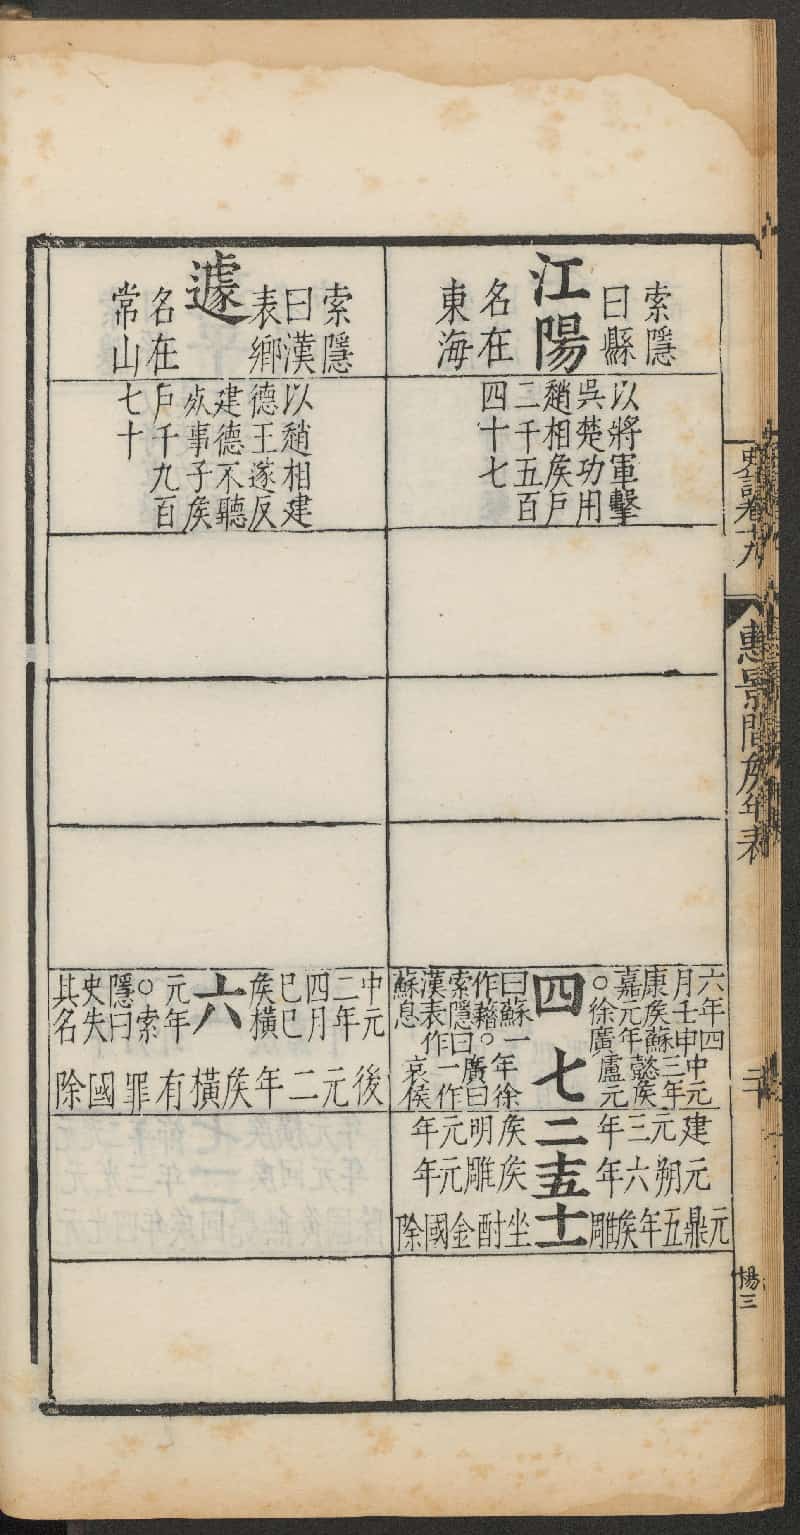 史記卷十九
惠景間侯年表
二十
楊三
江陽
索隱
曰縣
名在
東海
以將軍擊
吳楚功用
趙相侯戶
二千五百
四十七
四
六年四
月壬申
康侯蘇
嘉元年
○徐廣
曰蘇一
作籍○
索隱曰
漢表作
蘇息
七
中元
三年
懿侯
盧元
年徐
廣曰
一作
哀侯
二
建元三年
侯明元年
十五
元朔六年
侯雕元年
十一
元鼎五年侯雕
坐酎金國除
遽
索隱
曰漢
表鄉
名在
常山
以趙相建
德王遂反
建德不聽
死事子侯
戶千九百
七十
六
中元
二年
四月
巳巳
侯橫
元年
○索
隱曰
史失
其名
後元二年侯橫有罪國除